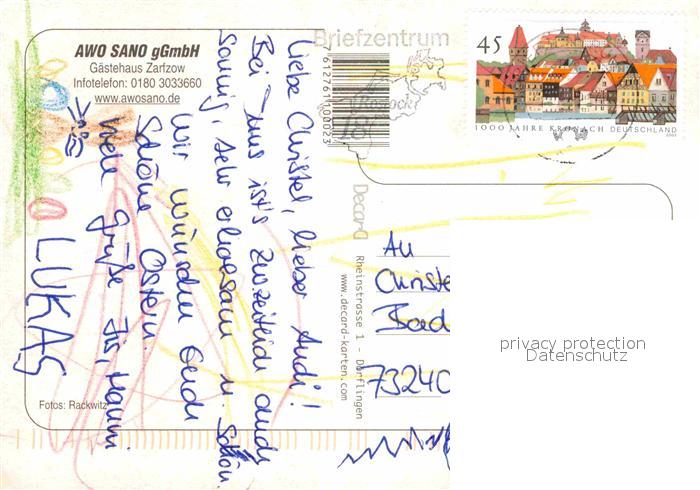 AWO SANO gGmbH
Gästehaus Zarfzow
Infotelefon: 0180 3033660
www.awosano.de
Liebe Christel, lieber Andi!
Bei uns ist's zurzeit auch
sonnig, sehr erholsam u. schön.
Wir wünschen Euch
Schöne Ostern.
Viele Grüße
LUKAS
Fotos: Rackwitz
Briefzentrum
7612761100023
Rostock
18
DecarD
Rheinstrasse 1 - Dörflingen
www.decard-karten.com
45
1000 JAHRE KRONACH DEUTSCHLAND
2003
An
Christe
Bad
73240
privacy protection
Datenschutz